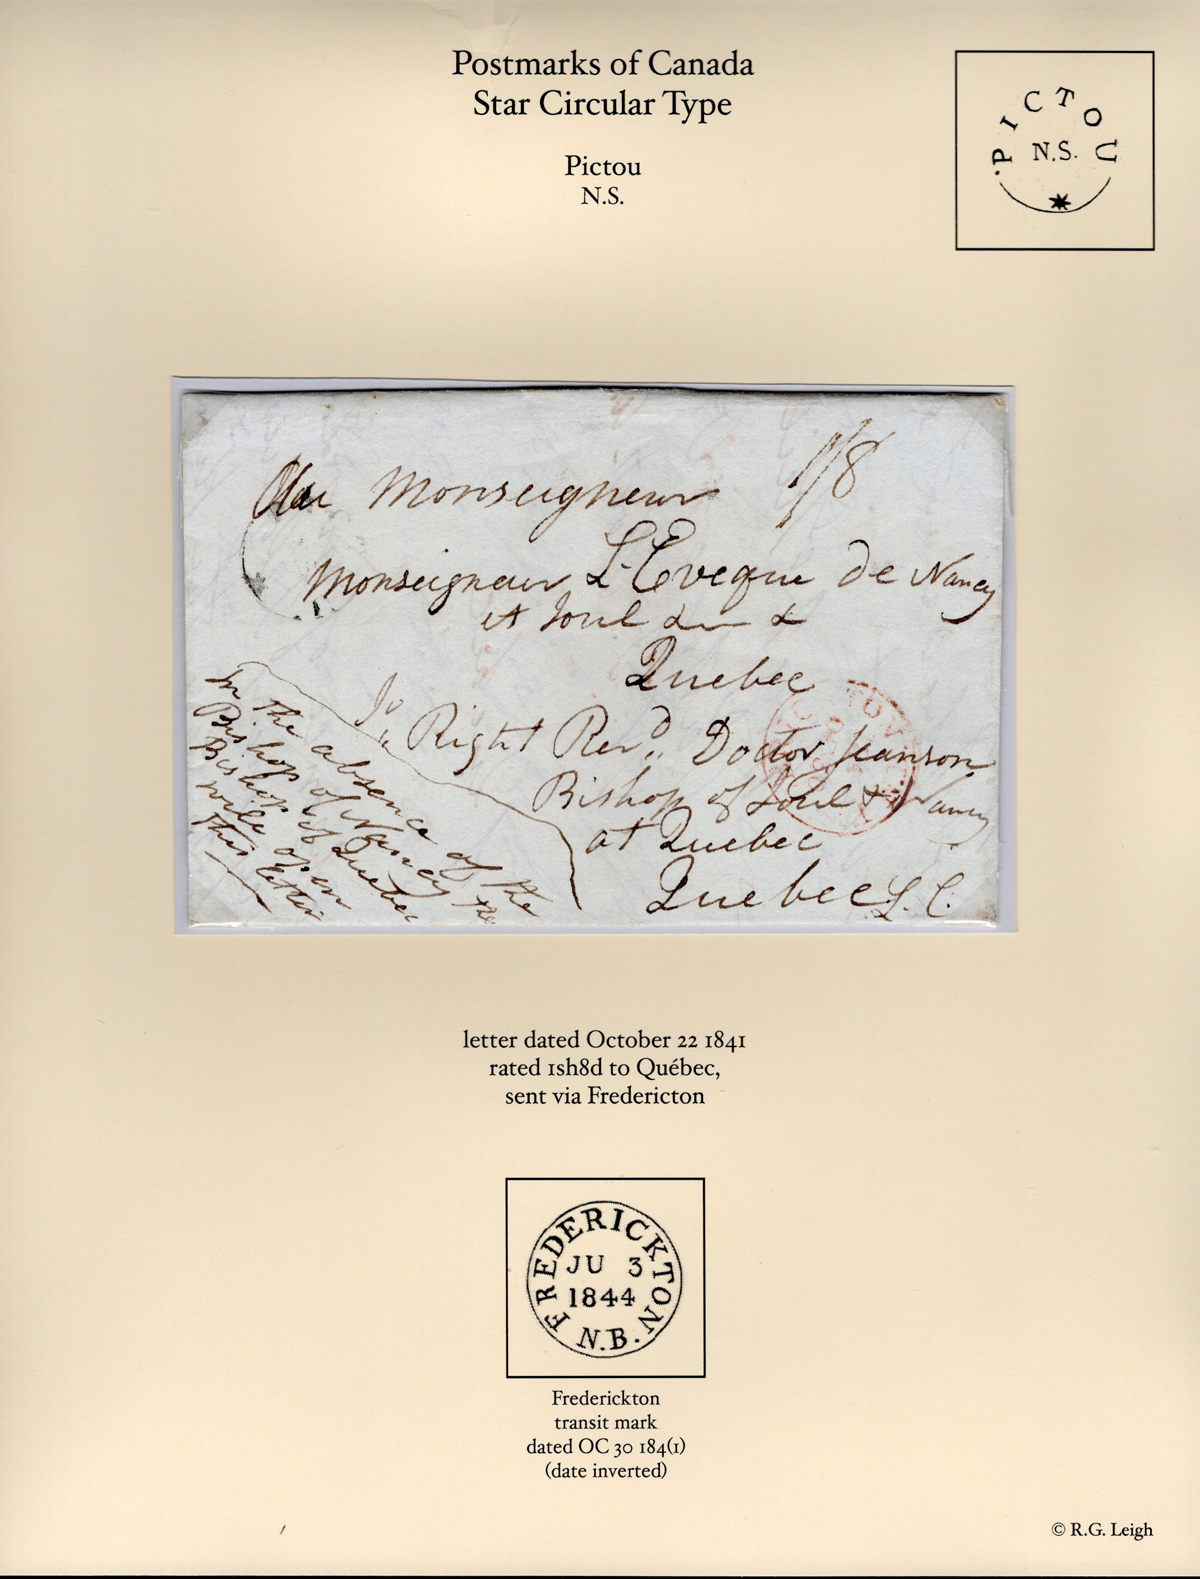 Postmarks of Canada
Star Circular Type
Pictou
N.S.
PICTOU
N.S.
Monseigneur 1/8
Monseigneur L'Eveque de Nancy
et Toul & &
Quebec
To
Right Revd. Doctor Jeanson
Bishop of Toul & Nancy
at Quebec
Quebec L.C.
In the absence of the
Bishop of Nancy the
Bishop of Quebec
will open
this letter
letter dated October 22 1841
rated 1sh8d to Québec,
sent via Fredericton
FREDERICKTON
JU 3
1844
N.B.
Frederickton
transit mark
dated OC 30 184(1)
(date inverted)
© R.G. Leigh